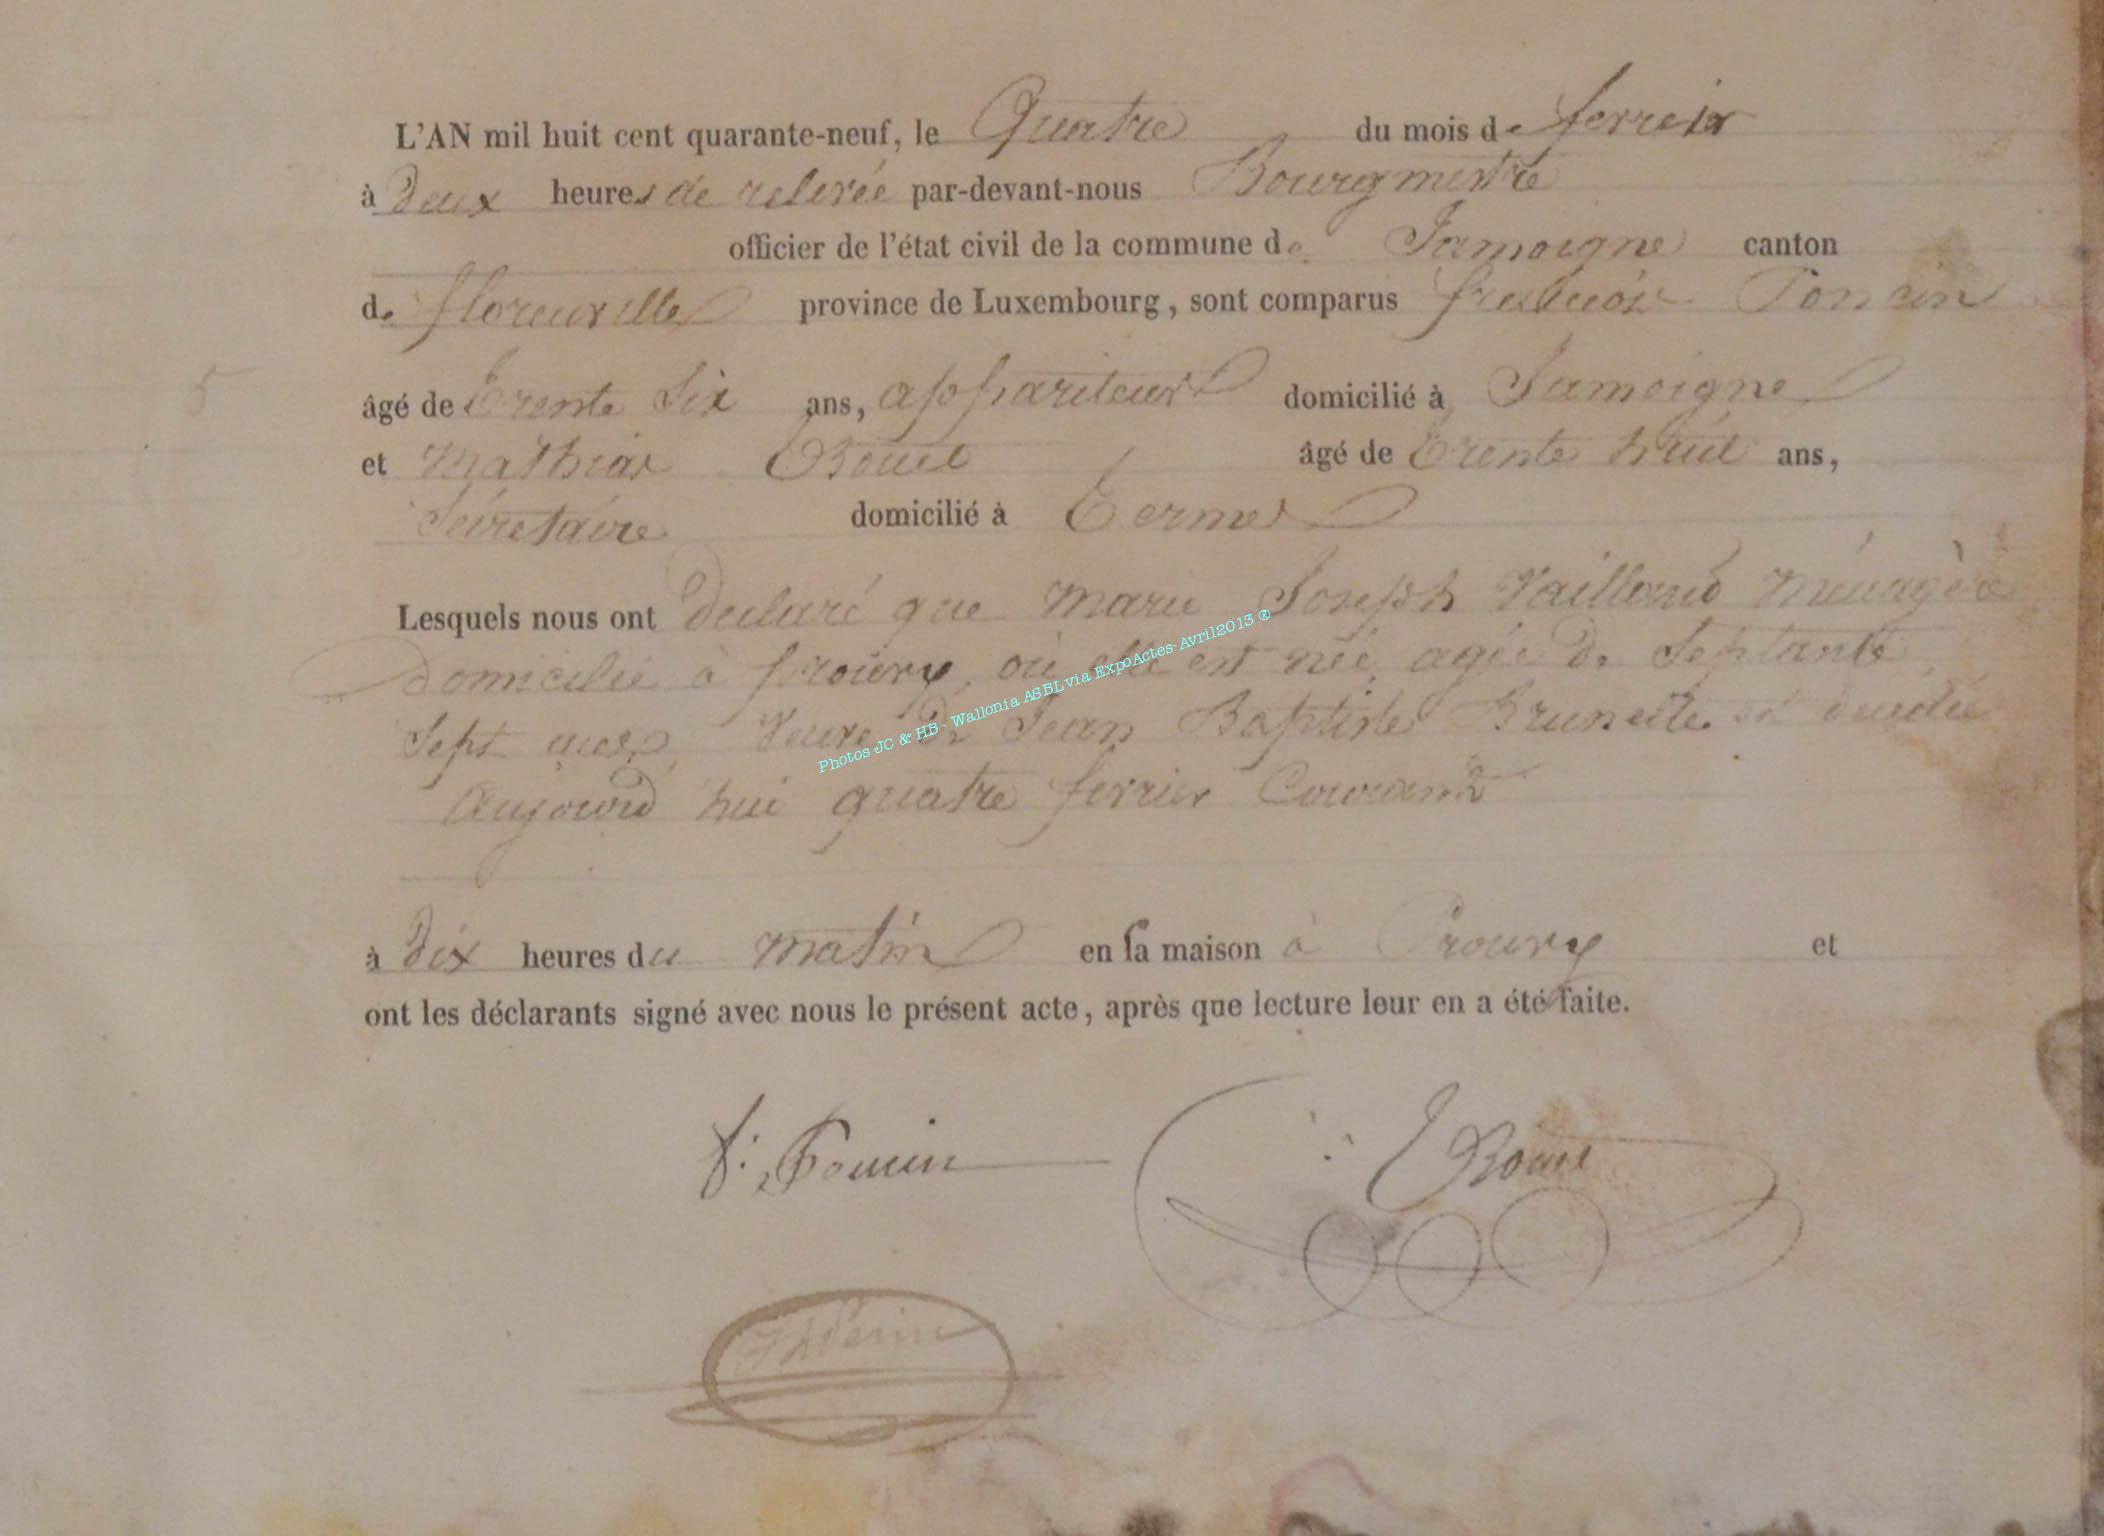 L'AN mil huit cent quarante-neuf, le Quatre du mois de fevrier
à Deux heures de relevée par-devant-nous Bourgmestre
officier de l'état civil de la commune de Jamoigne canton
de florenville province de Luxembourg, sont comparus Poncin
5
âgé de Trente Six ans, appariteur domicilié à Jamoigne
et Mathias Bouil âgé de Trente huit ans,
Sécretaire domicilié à Termes
Lesquels nous ont declaré que Marie Joseph Vailland Ménagère
domicilie à prouvy, où elle est née, agée de Septante
Sept ans, Veuve de Jean Baptiste Brunelle est décédée
Aujourd hui quatre fevrier Courant
à Dix heures du Matin en sa maison à Prouvy et
ont les déclarants signé avec nous le présent acte, après que lecture leur en a été faite.
f: Poncin
Photos JC & HB - Wallonia ASBL via ExpoActes-Avril2013 ®